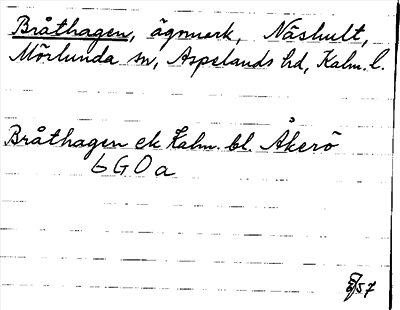 Bråthagen, ägomark, Näshult,
Mörlunda sn, Aspelands hd, Kalm. l.
Bråthagen ek Kalm. bl. Åkerö
6 G 0 a
57